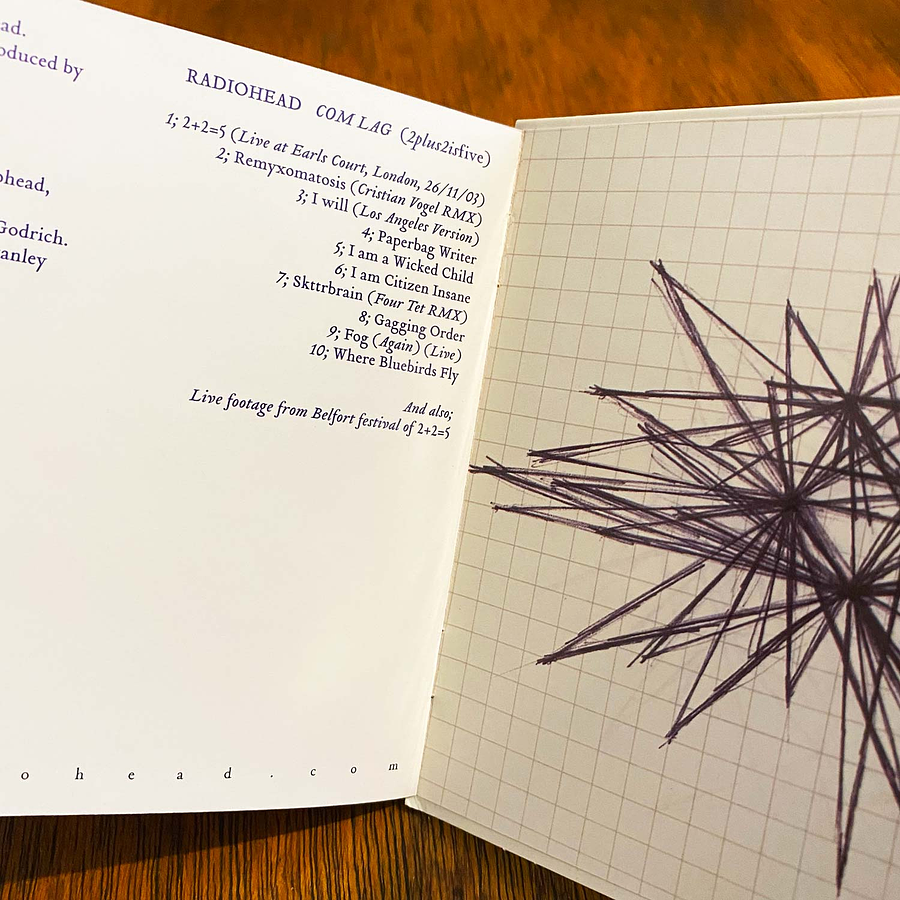 ad.
oduced by
ohead,
Godrich.
anley
RADIOHEAD COM LAG (2plus2isfive)
1; 2+2=5 (Live at Earls Court, London, 26/11/03)
2; Remyxomatosis (Cristian Vogel RMX)
3; I will (Los Angeles Version)
4; Paperbag Writer
5; I am a Wicked Child
6; I am Citizen Insane
7; Skttrbrain (Four Tet RMX)
8; Gagging Order
9; Fog (Again) (Live)
10; Where Bluebirds Fly
And also;
Live footage from Belfort festival of 2+2=5
o h e a d . c o m